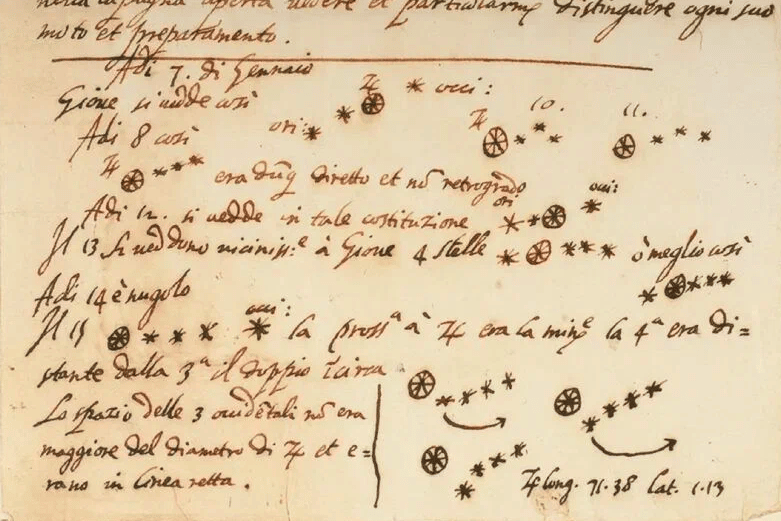 nella campagna aperta vedere et particularmᵉ distinguere ogni suo
moto et preparamento.
Adi 7. di Gennaio
Gione si vedde così ♃ occi:
ori: 10. 11.
Adi 8 così ♃
♃ era dũq diretto et nõ retrogrado
Adi 12. si vedde in tale costituzione ori occi:
Il 13 si veddono viciniss:ᵉ à Giove 4 stelle ò meglio così
Adi 14 è nugolo
Il 15 occi: la prossᵃ à ♃ era la minᵉ la 4ᵃ era di=
stante dalla 3ᵃ il doppio ĩcirca
Lo spazio delle 3 occidẽtali nõ era
maggiore del diametro di ♃ et e=
rano in linea retta.
♃ long. 71.38 lat. 1.13